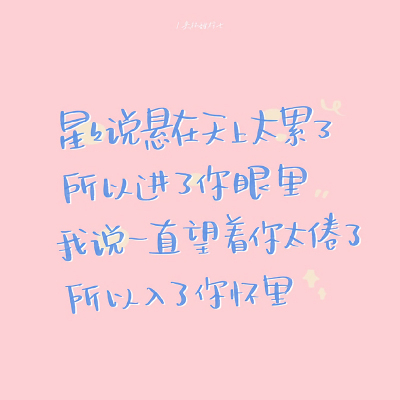 星星说悬在天上太累了
所以进了你眼里
我说一直望着你太倦了
所以入了你怀里